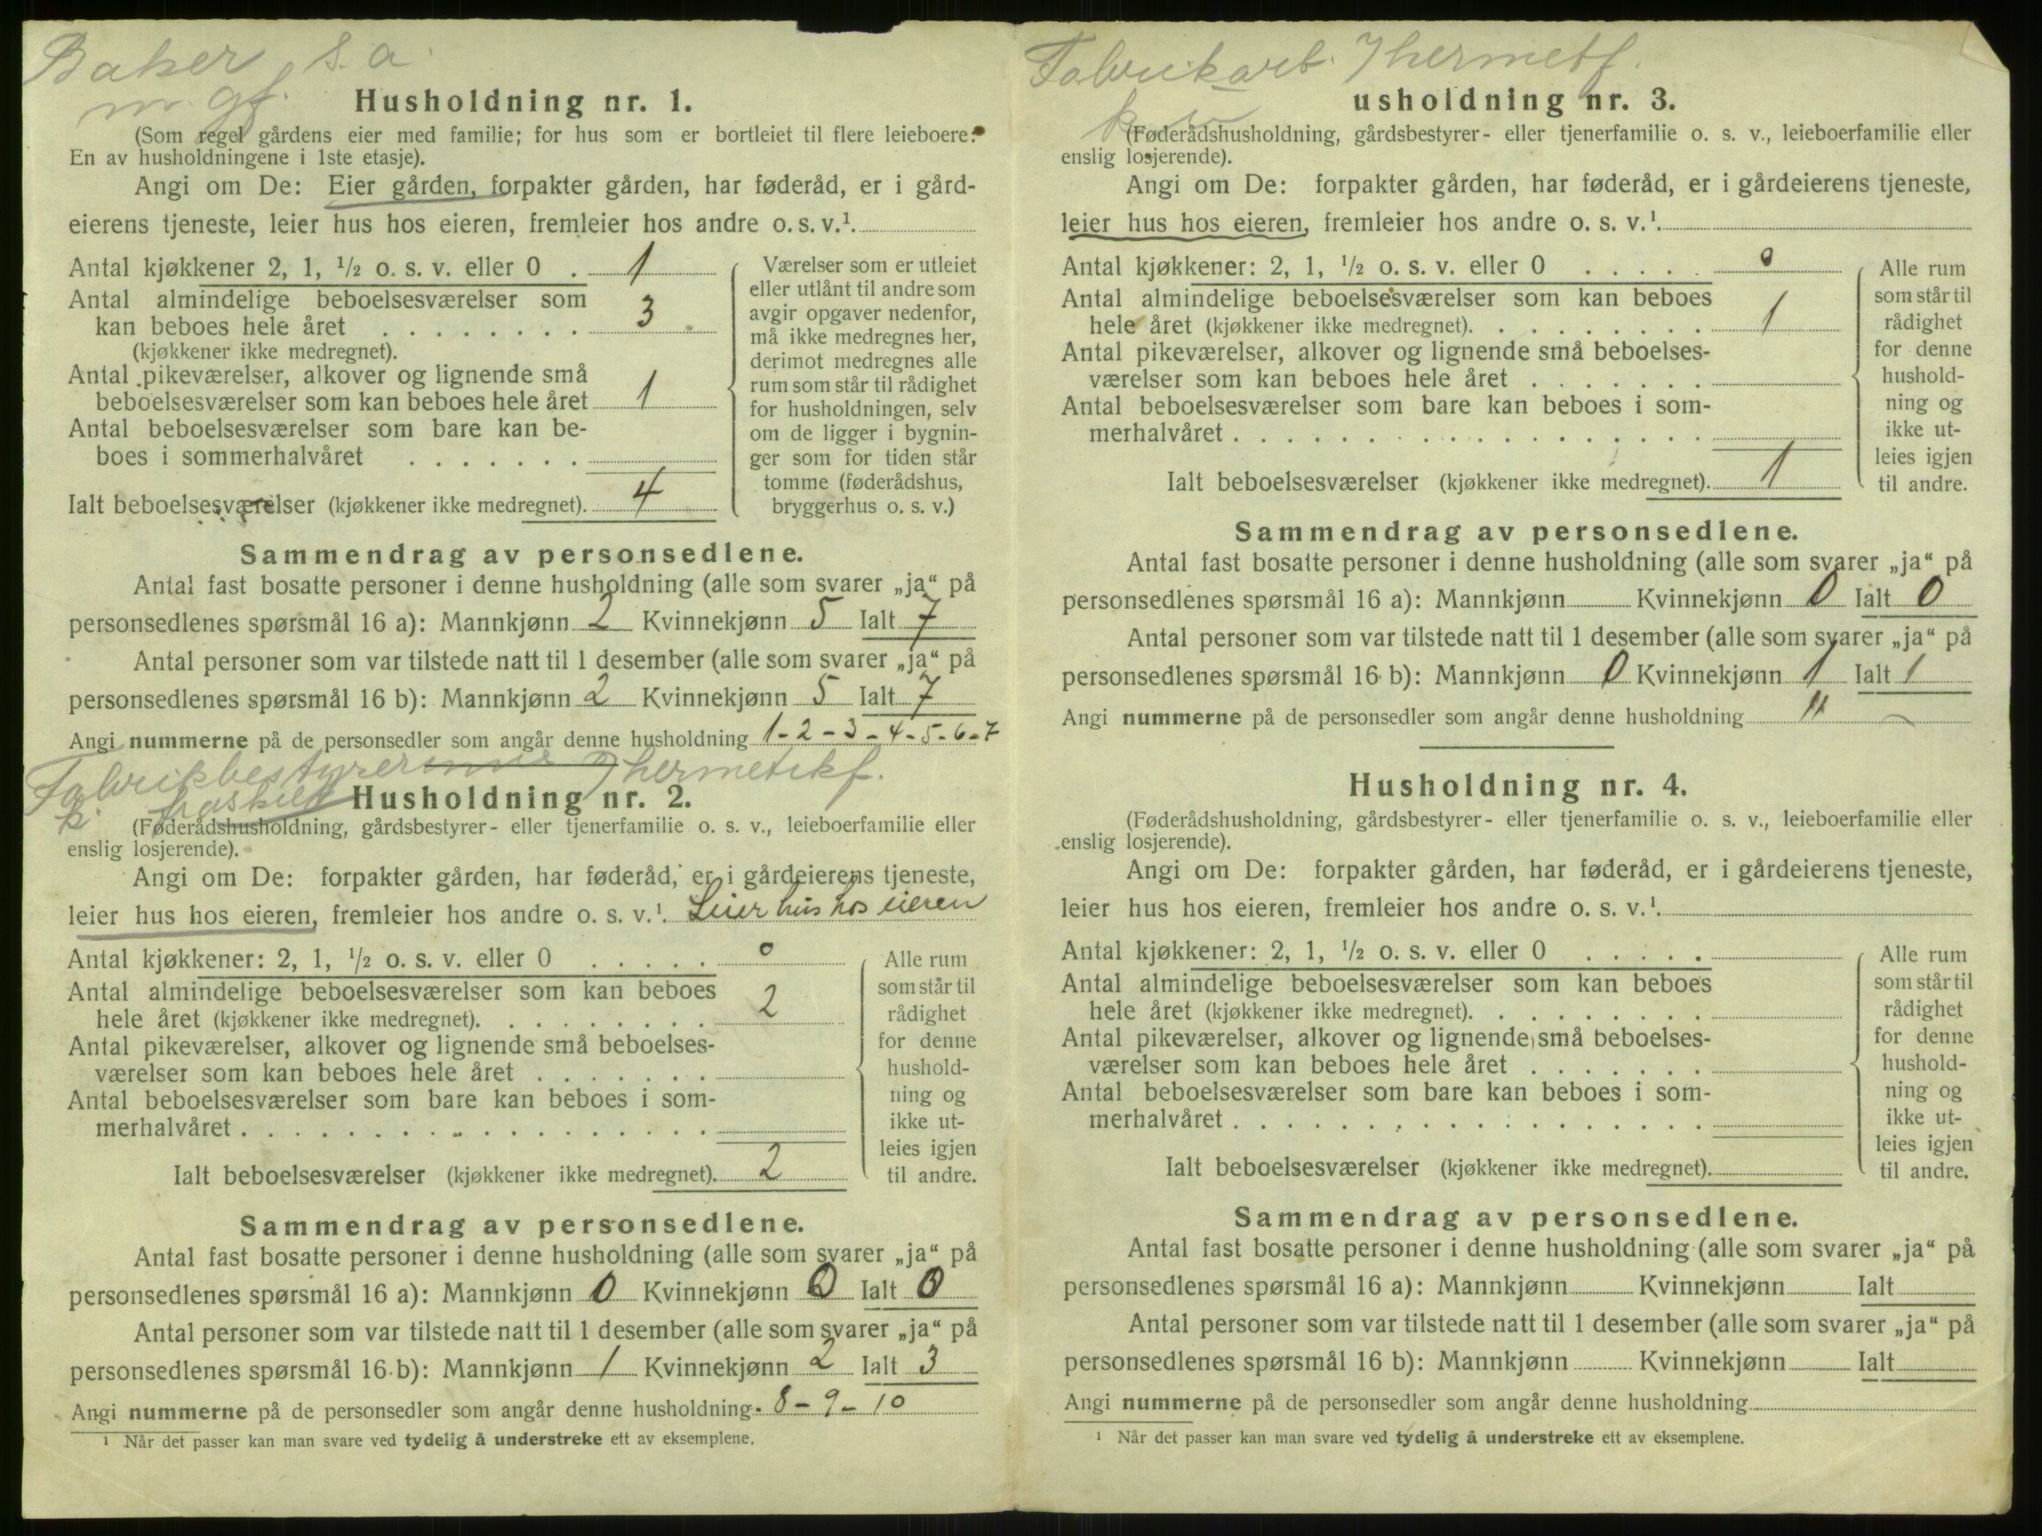 Baker s.a.
m gf.
Husholdning nr. 1.
(Som regel gårdens eier med familie; for hus som er bortleiet til flere leieboere:
En av husholdningene i 1ste etasje).
Angi om De: Eier gården, forpakter gården, har føderåd, er i gård-
eierens tjeneste, leier hus hos eieren, fremleier hos andre o. s. v.¹.
Antal kjøkkener 2, 1, ½ o. s. v. eller 0 . 1
Antal almindelige beboelsesværelser som
kan beboes hele året . . . . . . . . 3
(kjøkkener ikke medregnet).
Antal pikeværelser, alkover og lignende små
beboelsesværelser som kan beboes hele året 1
Antal beboelsesværelser som bare kan be-
boes i sommerhalvåret . . . . . . .
Ialt beboelsesværelser (kjøkkener ikke medregnet). 4
Værelser som er utleiet
eller utlånt til andre som
avgir opgaver nedenfor,
må ikke medregnes her,
derimot medregnes alle
rum som står til rådighet
for husholdningen, selv
om de ligger i bygnin-
ger som for tiden står
tomme (føderådshus,
bryggerhus o. s. v.)
Sammendrag av personsedlene.
Antal fast bosatte personer i denne husholdning (alle som svarer „ja“ på
personsedlenes spørsmål 16 a): Mannkjønn 2 Kvinnekjønn 5 Ialt 7
Antal personer som var tilstede natt til 1 desember (alle som svarer „ja“ på
personsedlenes spørsmål 16 b): Mannkjønn 2 Kvinnekjønn 5 Ialt 7
Angi nummerne på de personsedler som angår denne husholdning 1-2-3-4-5-6-7
Fabrikbestyrer Ihermetikf.
k.
Husholdning nr. 2.
(Føderådshusholdning, gårdsbestyrer- eller tjenerfamilie o. s. v., leieboerfamilie eller
enslig losjerende).
Angi om De: forpakter gården, har føderåd, er i gårdeierens tjeneste,
leier hus hos eieren, fremleier hos andre o. s. v.¹. Leier hus hos eieren
Antal kjøkkener: 2, 1, ½ o. s. v. eller 0 . . . . . 0
Antal almindelige beboelsesværelser som kan beboes
hele året (kjøkkener ikke medregnet). . . . . . . . 2
Antal pikeværelser, alkover og lignende små beboelses-
værelser som kan beboes hele året . . . . . . .
Antal beboelsesværelser som bare kan beboes i som-
merhalvåret . . . . . . . . . . . . . . . . . .
Ialt beboelsesværelser (kjøkkener ikke medregnet). 2
Alle rum
som står til
rådighet
for denne
hushold-
ning og
ikke ut-
leies igjen
til andre.
Sammendrag av personsedlene.
Antal fast bosatte personer i denne husholdning (alle som svarer „ja“ på
personsedlenes spørsmål 16 a): Mannkjønn 0 Kvinnekjønn 0 Ialt 0
Antal personer som var tilstede natt til 1 desember (alle som svarer „ja“ på
personsedlenes spørsmål 16 b): Mannkjønn 1 Kvinnekjønn 2 Ialt 3
Angi nummerne på de personsedler som angår denne husholdning 8-9-10
¹ Når det passer kan man svare ved tydelig å understreke ett av eksemplene.
Fabrikarb. Ihermetf.
usholdning nr. 3.
(Føderådshusholdning, gårdsbestyrer- eller tjenerfamilie o. s. v., leieboerfamilie eller
enslig losjerende).
Angi om De: forpakter gården, har føderåd, er i gårdeierens tjeneste,
leier hus hos eieren, fremleier hos andre o. s. v.¹.
Antal kjøkkener: 2, 1, ½ o. s. v. eller 0 . . . . . 0
Antal almindelige beboelsesværelser som kan beboes
hele året (kjøkkener ikke medregnet). . . . . . . . 1
Antal pikeværelser, alkover og lignende små beboelses-
værelser som kan beboes hele året . . . . . . .
Antal beboelsesværelser som bare kan beboes i som-
merhalvåret . . . . . . . . . . . . . . . . . .
Ialt beboelsesværelser (kjøkkener ikke medregnet). 1
Alle rum
som står til
rådighet
for denne
hushold-
ning og
ikke ut-
leies igjen
til andre.
Sammendrag av personsedlene.
Antal fast bosatte personer i denne husholdning (alle som svarer „ja“ på
personsedlenes spørsmål 16 a): Mannkjønn Kvinnekjønn 0 Ialt 0
Antal personer som var tilstede natt til 1 desember (alle som svarer „ja“ på
personsedlenes spørsmål 16 b): Mannkjønn 0 Kvinnekjønn 1 Ialt 1
Angi nummerne på de personsedler som angår denne husholdning 11
Husholdning nr. 4.
(Føderådshusholdning, gårdsbestyrer- eller tjenerfamilie o. s. v., leieboerfamilie eller
enslig losjerende).
Angi om De: forpakter gården, har føderåd, er i gårdeierens tjeneste,
leier hus hos eieren, fremleier hos andre o. s. v.¹.
Antal kjøkkener: 2, 1, ½ o. s. v. eller 0 . . . . .
Antal almindelige beboelsesværelser som kan beboes
hele året (kjøkkener ikke medregnet). . . . . . . .
Antal pikeværelser, alkover og lignende små beboelses-
værelser som kan beboes hele året . . . . . . .
Antal beboelsesværelser som bare kan beboes i som-
merhalvåret . . . . . . . . . . . . . . . . . .
Ialt beboelsesværelser (kjøkkener ikke medregnet).
Alle rum
som står til
rådighet
for denne
hushold-
ning og
ikke ut-
leies igjen
til andre.
Sammendrag av personsedlene.
Antal fast bosatte personer i denne husholdning (alle som svarer „ja“ på
personsedlenes spørsmål 16 a): Mannkjønn Kvinnekjønn Ialt
Antal personer som var tilstede natt til 1 desember (alle som svarer „ja“ på
personsedlenes spørsmål 16 b): Mannkjønn Kvinnekjønn Ialt
Angi nummerne på de personsedler som angår denne husholdning
¹ Når det passer kan man svare ved tydelig å understreke ett av eksemplene.